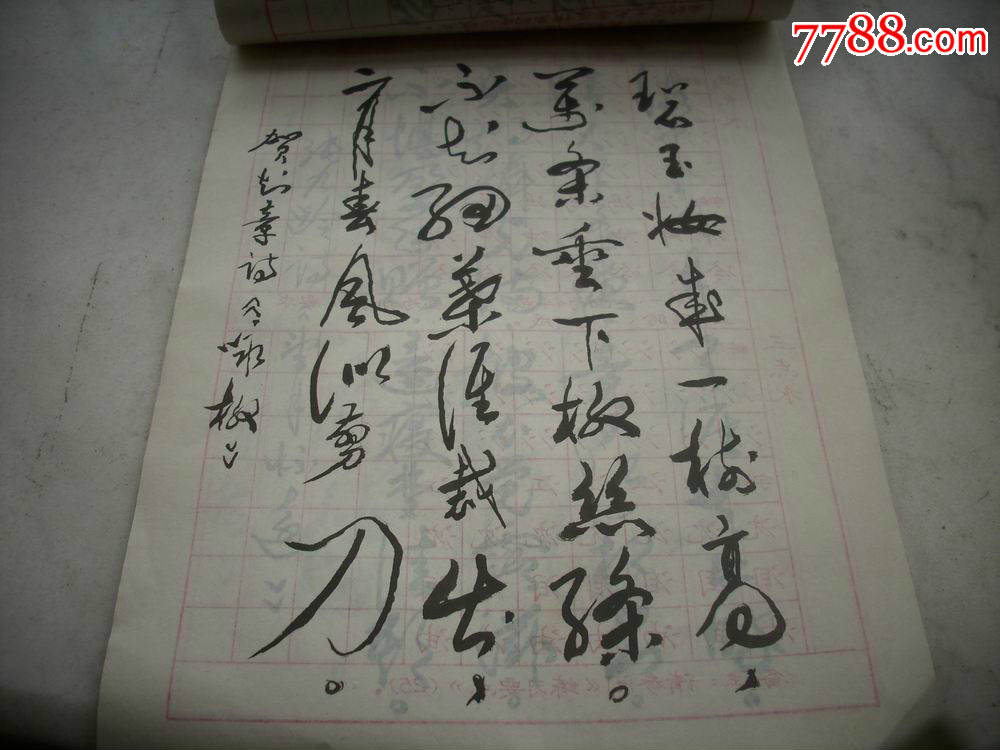 7788.com
碧玉妆成一树高，
萬条垂下柳丝绦。
不知细葉谁裁出，
二月春风似剪刀。
贺知章诗咏柳